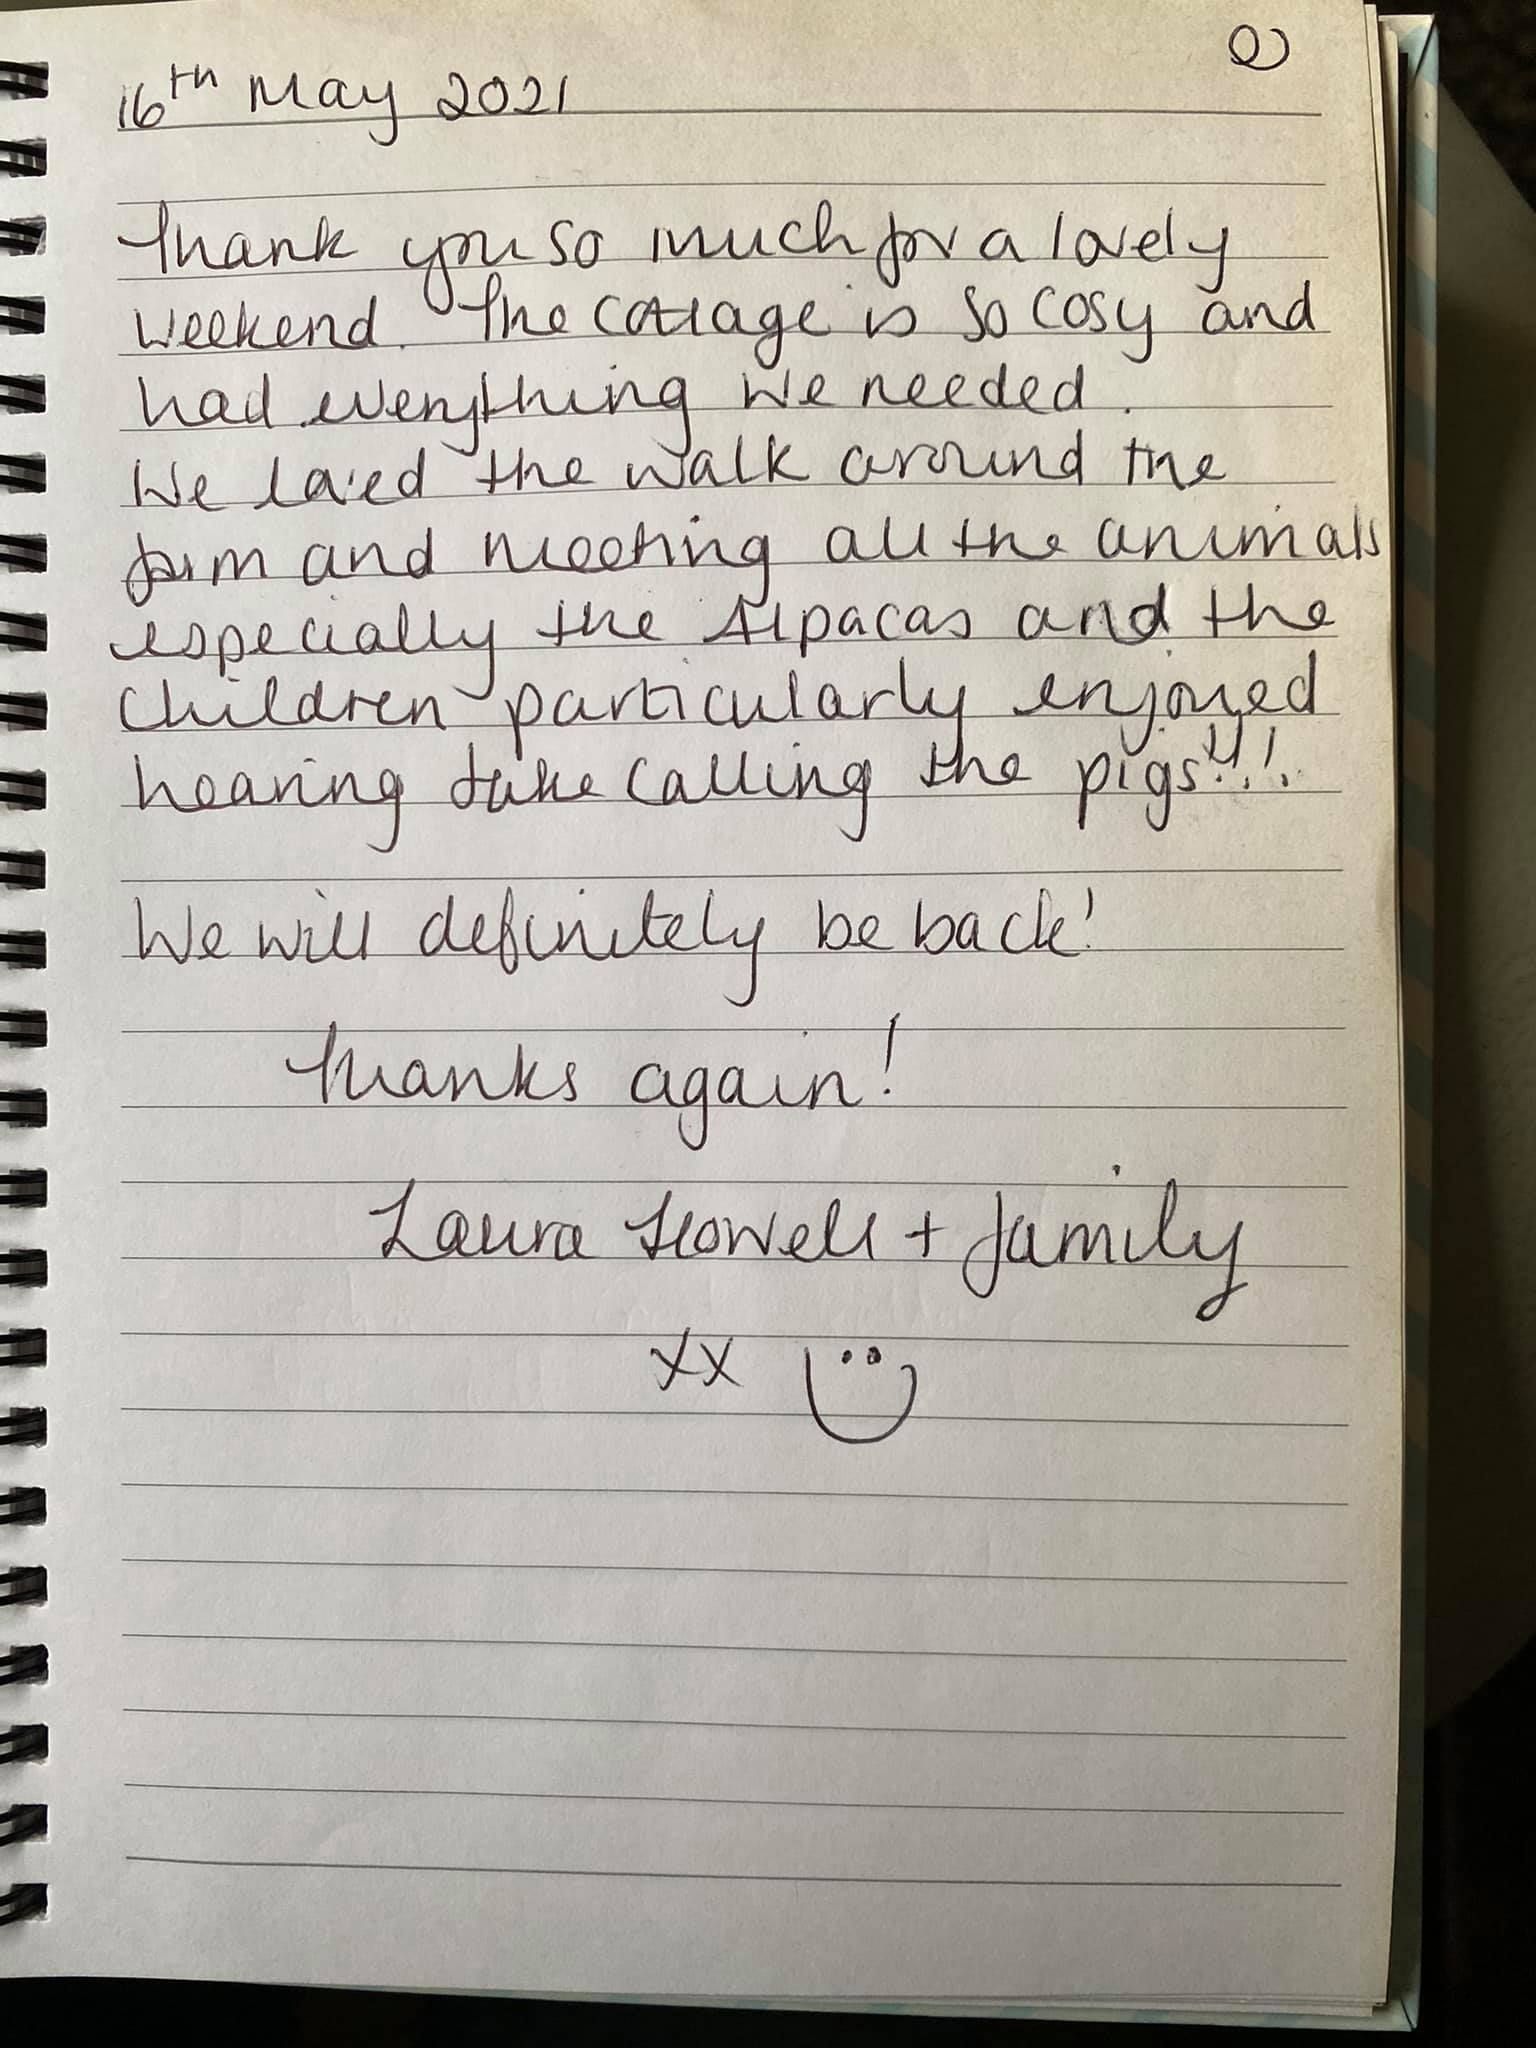 16th May 2021
Thank you so much for a lovely
weekend. The cottage is so cosy and
had everything we needed.
We loved the walk around the
farm and meeting all the animals
especially the Alpacas and the
Children particularly enjoyed
hearing calling the pigs!!!!
We will definitely be back!
Thanks again!
Laura Howell + family
xx